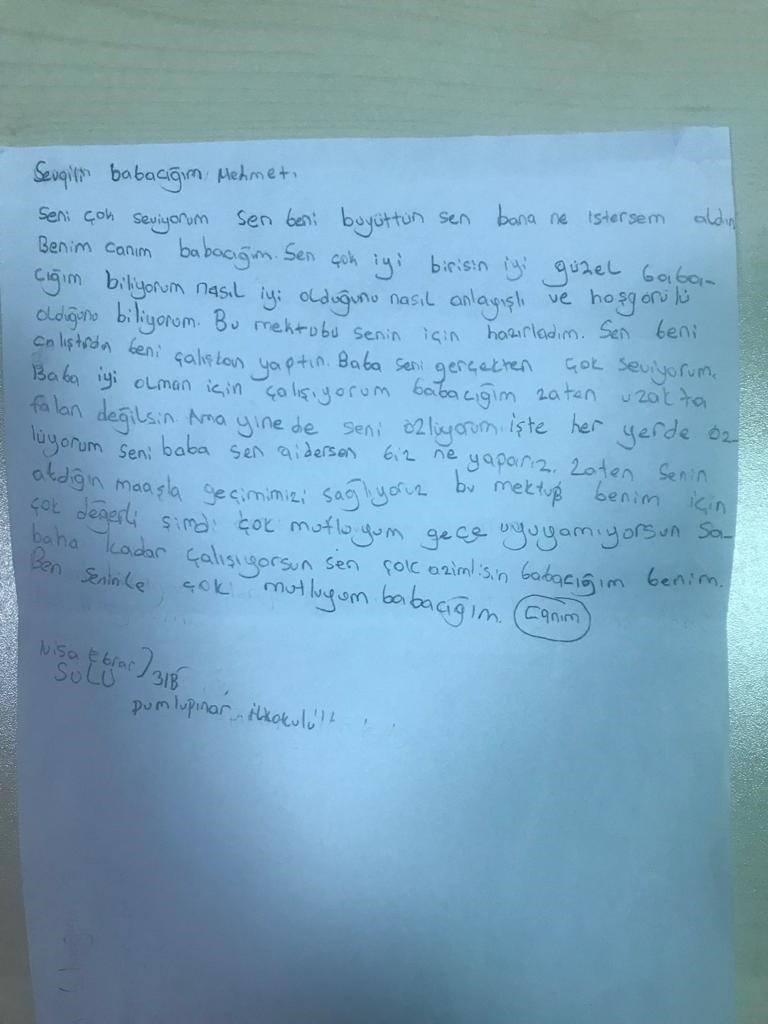 Sevgilin babacığım, Mehmet,
Seni çok seviyorum Sen beni büyüttün sen bana ne istersem aldın
Benim canım babacığım. Sen çok iyi birisin iyi güzel baba-
cığım biliyorum nasıl iyi olduğunu nasıl anlayışlı ve hoşgörülü
olduğunu biliyorum. Bu mektubu senin için hazırladım. Sen beni
beni çalışkan yaptın. Baba seni gerçekten çok seviyorum.
Baba iyi olman için çalışıyorum babacığım zaten uzakta
falan değilsin. Ama yine de seni özlüyorum. işte her yerde öz-
lüyorum seni baba sen gidersen biz ne yaparız. Zaten senin
aldığın maaşla geçimimizi sağlıyoruz bu mektup benim için
çok değerli şimdi çok mutluyum gece uyuyamıyorsun sa-
baha kadar çalışıyorsun sen çok azimlisin babacığım benim.
Ben seninle çok mutluyum babacığım. Canım
Nisa Ebrar
SULU 3/B
Dumlupınar İlkokulu!!